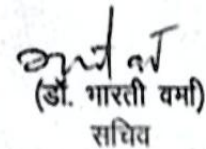 (डॉ. भारती वर्मा)
सचिव